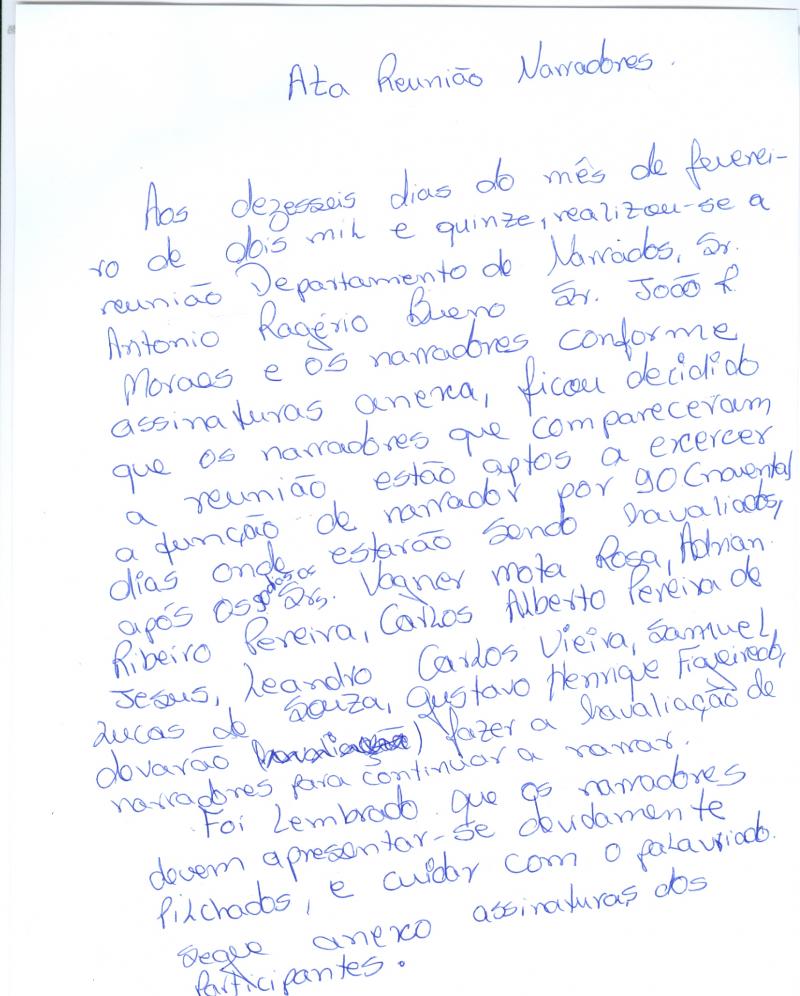 Ata Reunião Narradores.
Aos dezesseis dias do mês de feverei-
ro de dois mil e quinze, realizou-se a
reunião Departamento de Narrados, Sr.
Antonio Ragério Bueno Sr. João R.
Moraes e os narradores conforme
assinaturas anexa, ficou decidido
que os narradores que compareceram
a reunião estão aptos a excercer
a função de narrador por 90 (noventa)
dias onde estarão sendo havaliados,
após os 90 dias os Srs. Vagner mota Rosa, Adrian
Ribeiro Pereira, Carlos Alberto Pereira de
Jesus, Leandro Carlos Vieira, Samuel
Lucas de Souza, Gustavo Henrique Figueiredo,
devarão fazer a havaliação de
narradores para continuar a narrar.
Foi Lembrado que os narradores
devem apresentar-se devidamente
Pilchados, e cuidar com o palavriado.
Segue anexo assinaturas dos
Participantes.